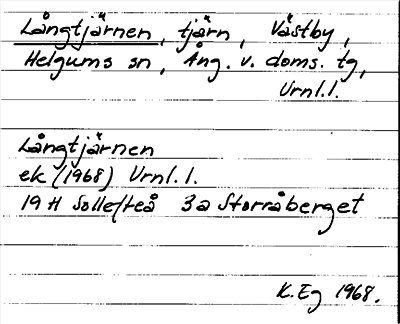 Långtjärnen, tjärn, Västby,
Helgums sn, Ång. v. doms. tg,
Vrnl.l.
Långtjärnen
ek (1968) Vrnl.l.
19 H Sollefteå 3a Storråberget
K. Eg 1968.